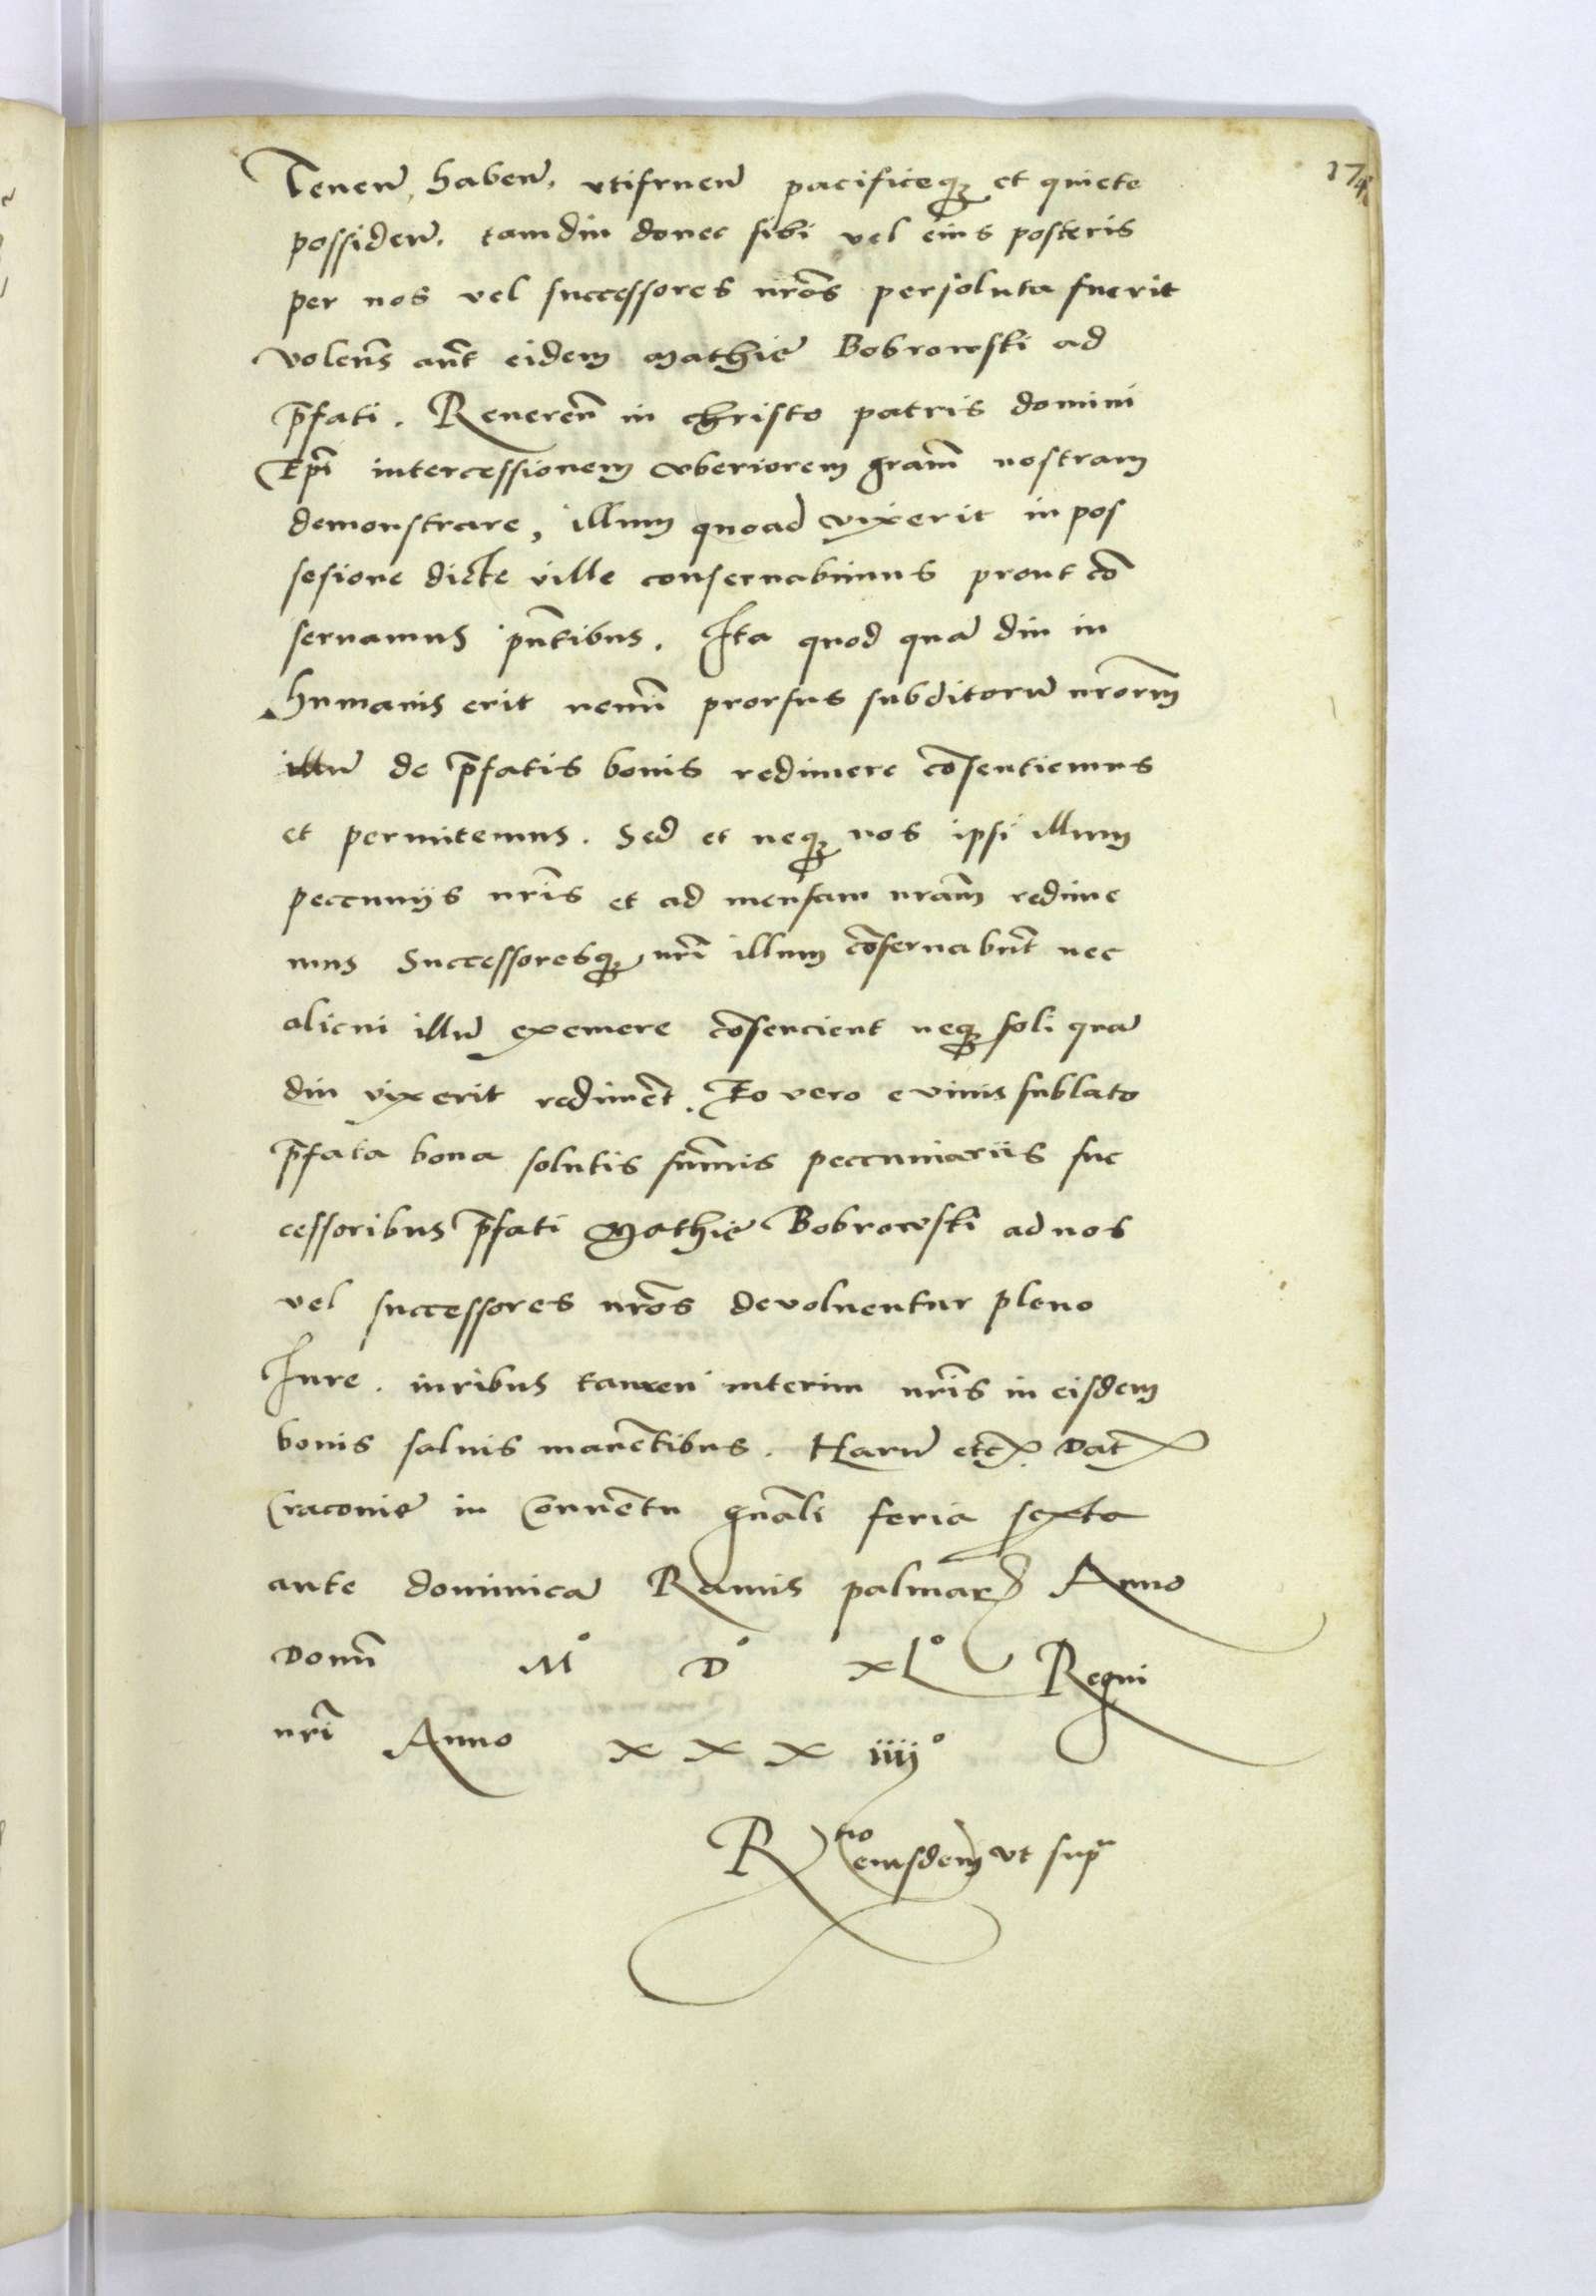 174
Tenen̄, haben̄, vtifruen̄ pacificeqȝ et quiete
possiden̄. tamdiu donec sibi vel eius posteris
per nos vel successores nr̄os persoluta fuerit
volen̄s aūt eidem Mathie Bobrowski ad
p̄fati. Reueren̄ in christo patris domini
Ep̄i intercessionem vberiorem gram̄ nostram
demonstrare, illum quoad vixerit in pos
sesione dicte ville conseruabimus prout cō
seruamus pn̄tibus. Ita quod quā diu in
humanis erit nemī prorsus subditorū nrorm̄
illū de p̄fatis bonis redimere cōsentiemus
et permitemus. Sed et neqȝ nos ipsi illum
peccunijs nr̄is et ad mensam nram̄ redime
mus Successoresqȝ nr̄i illum cōseruabūt nec
alicui illū exemere cōsencient neqȝ soli quā
diu vixerit redimēt. Eo vero e viuis sublato
p̄fata bona solutis sum̄is peccuniariis suc
cessoribus p̄fati Mathie Bobrowski ad nos
vel successores nr̄os devoluentur pleno
Iure. iuribus tamen interim nr̄is in eisdem
bonis saluis manētibus. Harū etc. Dat
Cracovie in Conuētu gn̄ali feria sexta
ante dominicā Ramis palmarꝫ Anno
Domī M° D° XL° Regni
nr̄i Anno XXX iiij°
R̄tio eiusdem vt supᵃ